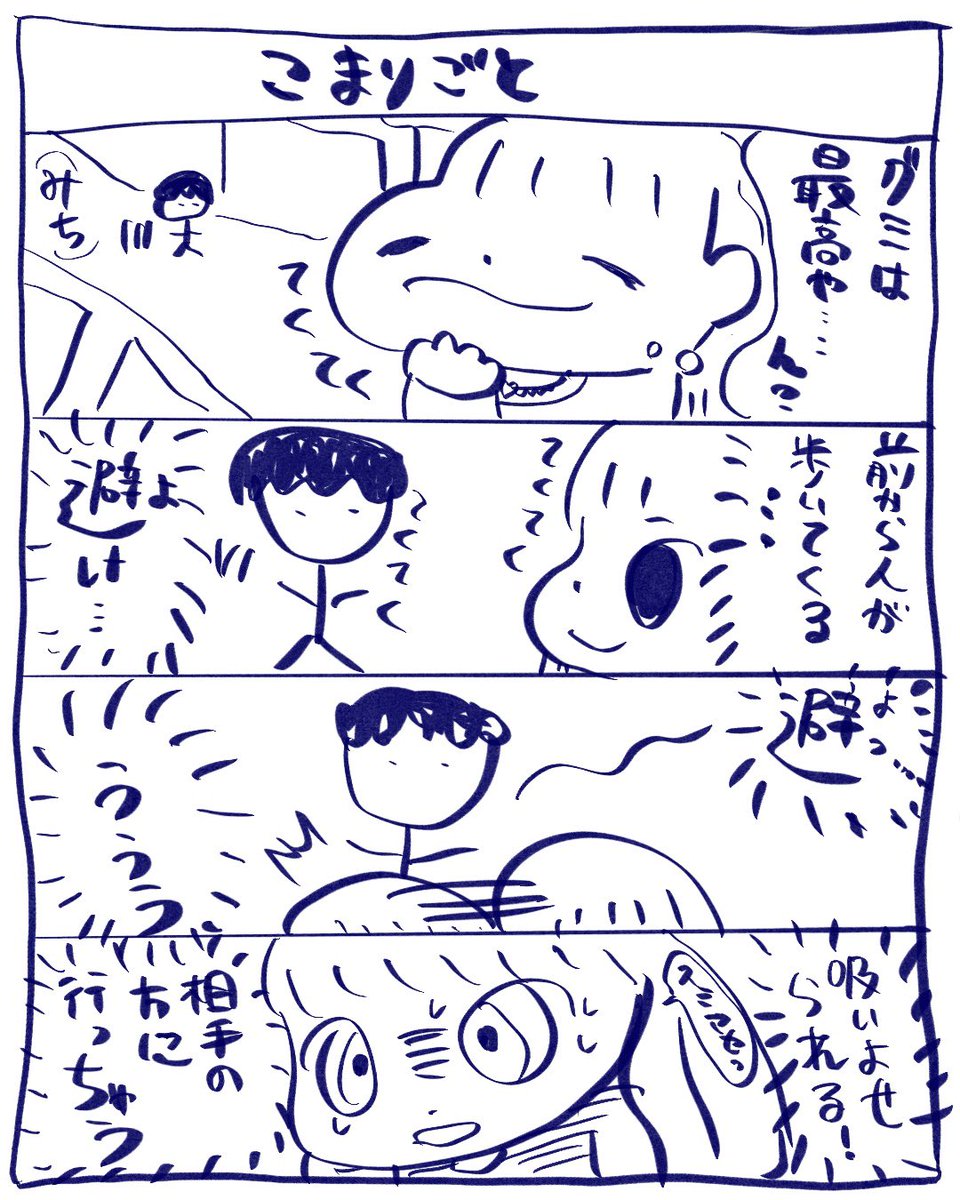 こまりごと
グミは
最高や……
ん?
てくてく
(みち)
前から人が
歩いてくる
…
てくてく
てくてく
避よ
け…
避よっ……
ううう
吸いよせ
られる!
スミマセッ
相手の
方に
行っちゃう